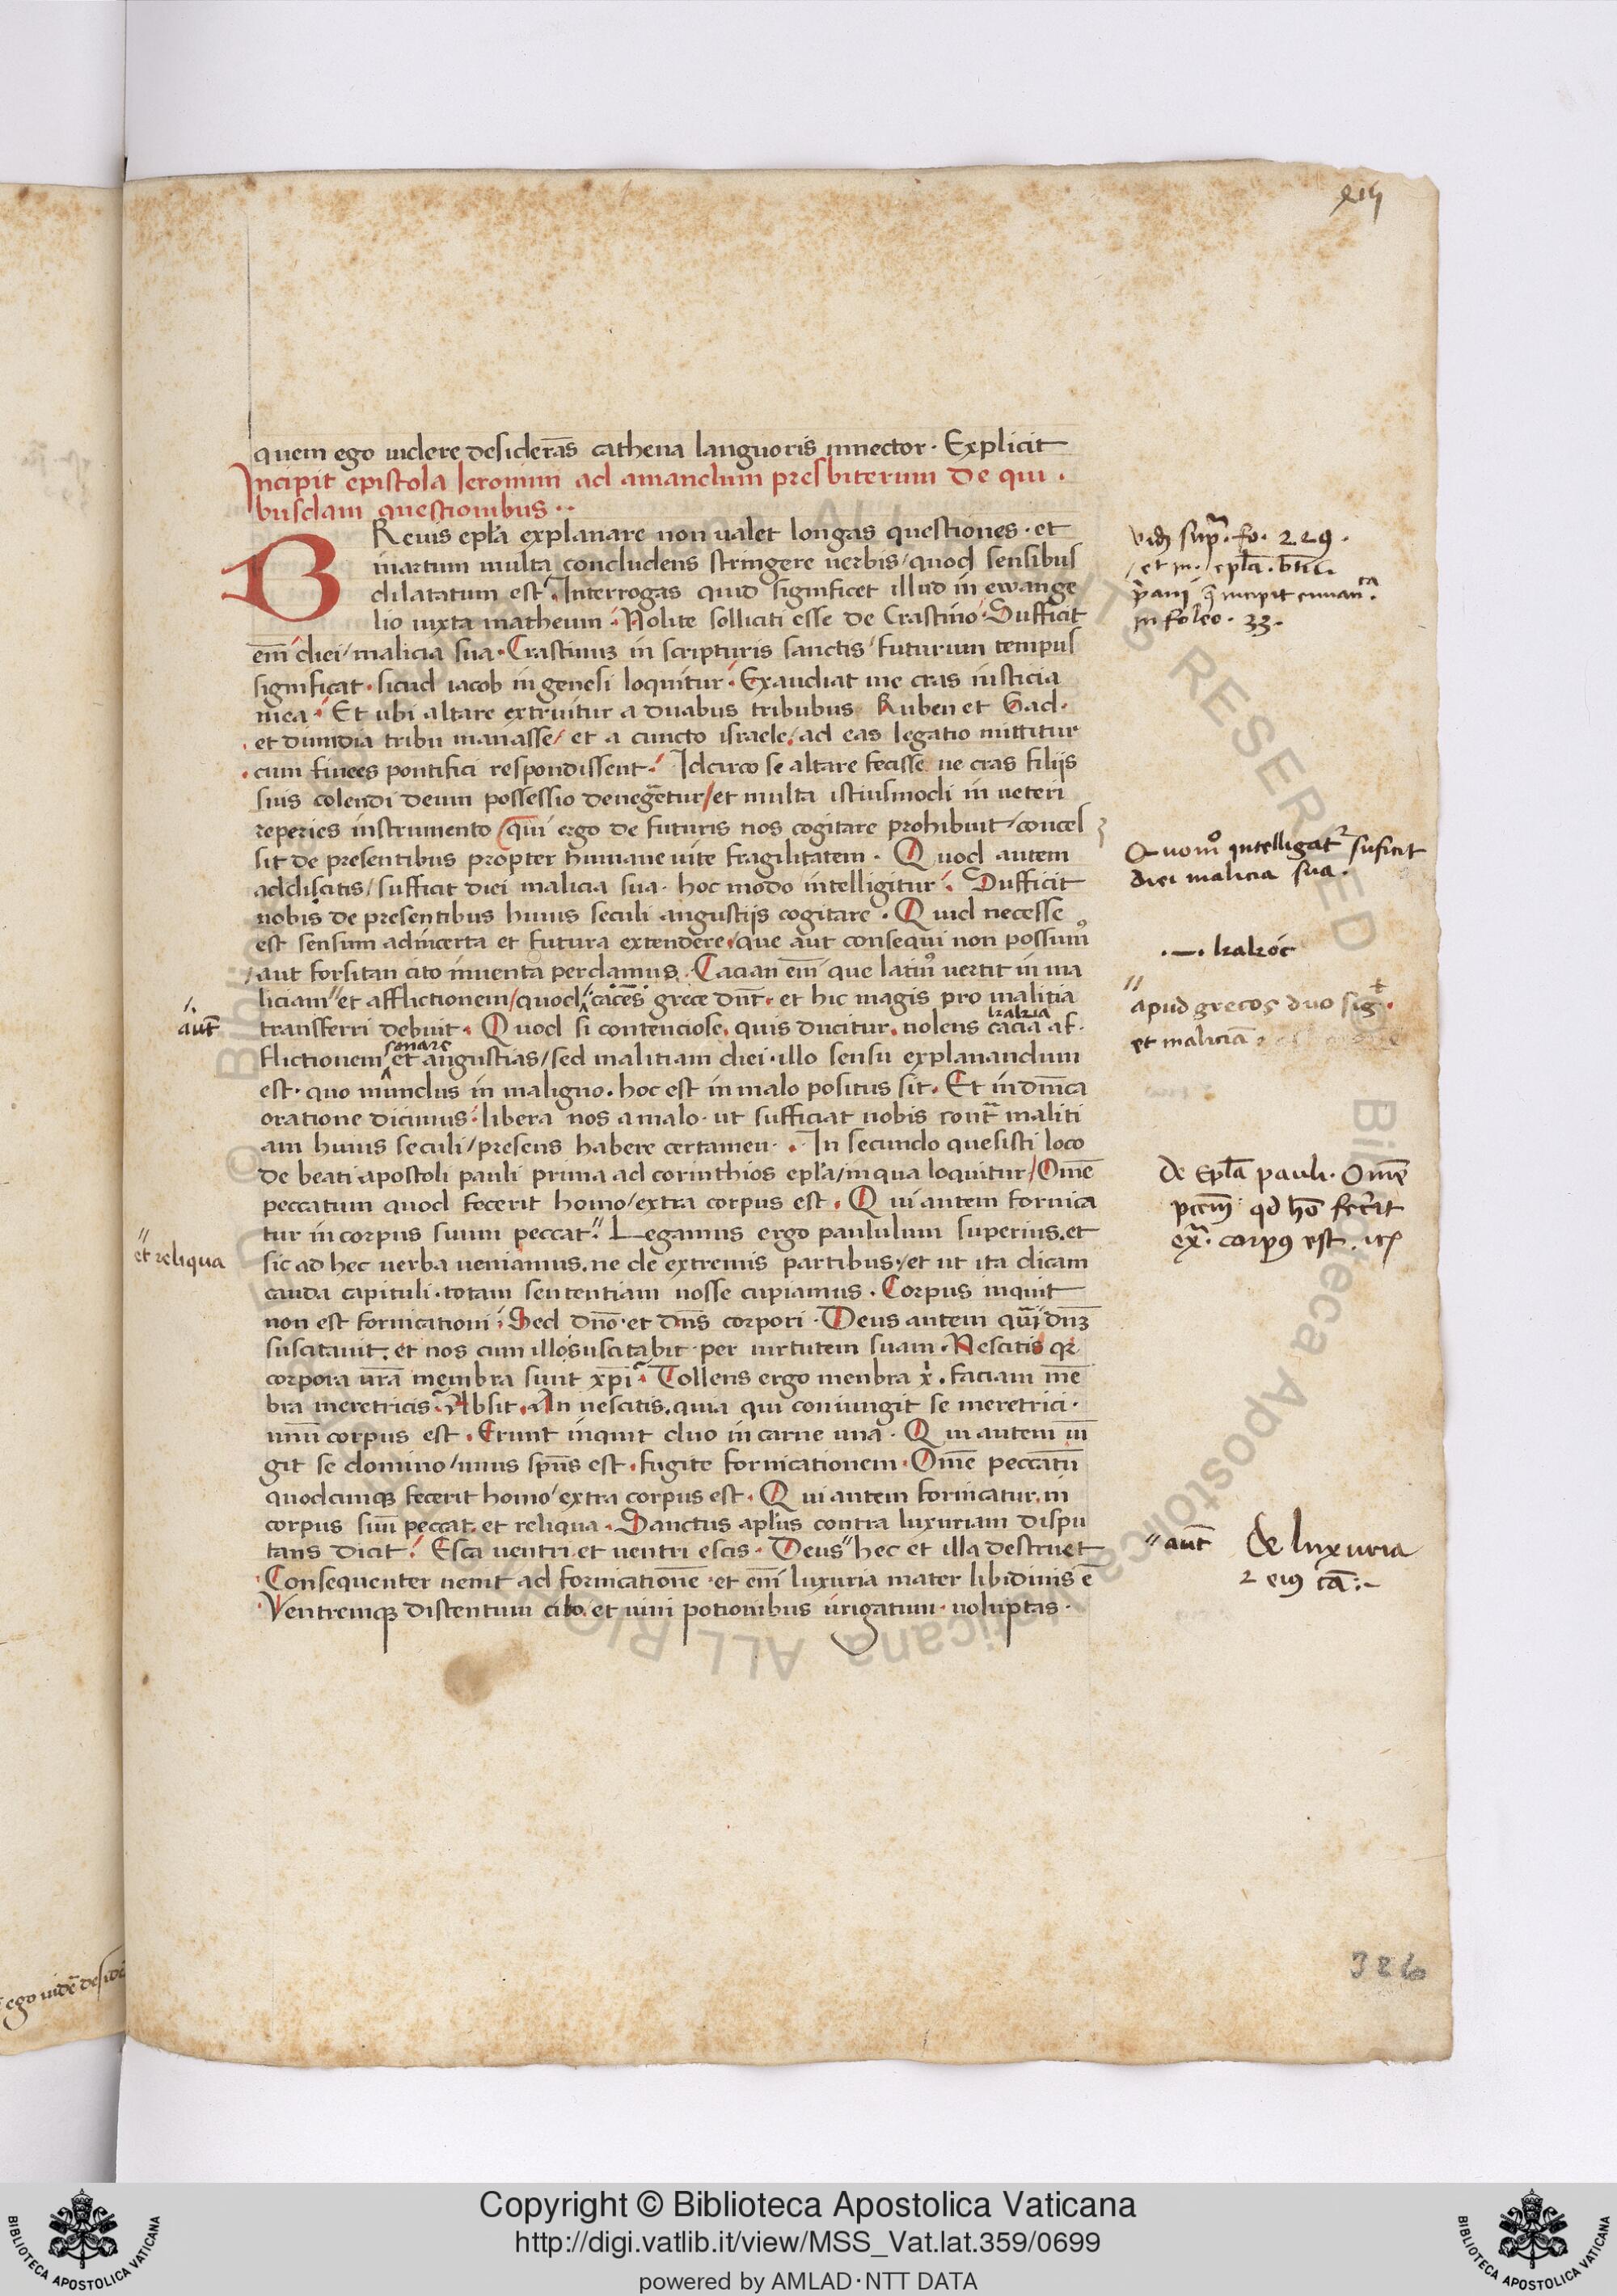 quem ego uidere desiderās cathena languoris innector · Explicit
Incipit epistola Ieronimi ad amandum presbiterum de qui ·
busdam questionibus ··
BReuis epl̄a explanare non ualet longas questiones · et
inartum multa concludens stringere uerbis / quod sensibus
dilatatum est · Interrogas quid significet illud in ewange
lio iuxta matheum · Nolite solliciti esse de Crastino · Sufficit
em̄ diei / malicia sua · Crastinuz in scripturis sanctis / futurum tempus
significat · sicud iacob in genesi loquitur · Exaudiat me cras iusticia
mea · Et ubi altare extruitur a duabus tribubus Ruben et Gad ·
et dimidia tribu manasse / et a cuncto israele · ad eas legatio mittitur
cum finees pontifici respondissent · Idcirco se altare fecisse ne cras filijs
suis colendi deum possessio denegētur / et multa istiusmodi in ueteri
reperies instrumento / qui ergo de futuris nos cogitare prohibuit / conces
sit de presentibus propter humane uite fragilitatem · Quod autem
addiscitis / sufficit diei malicia sua · hoc modo intelligitur · Sufficit
nobis de presentibus huius seculi angustijs cogitare · Quid necesse
est sensum adincerta et futura extendere · que aut consequi non possum9
aut forsitan cito inuenta perdamus · Cacian em̄ que latin9 uertit in ma
liciam" et afflictionem / quod cāces grece dn̄t · et hic magis pro malitia
transferri debuit · Quod si contenciose · quis ducitur · nolens cacia af ·
kakia
flictionem et angustias / sed malitiam diei · illo sensu explanandum
sonare
est · quo mundus in maligno · hoc est in malo positus sit · Et in dn̄ica
oratione dicimus · libera nos a malo · ut sufficiat nobis cont̄ maliti
am huius seculi / presens habere certamen · In secundo quesisti loco
de beati apostoli pauli prima ad corinthios epl̄a / in qua loquitur / Om̄e
peccatum quod fecerit homo / extra corpus est · Qui autem fornica
tur in corpus suum peccat" Legamus ergo paululum superius · et
sic ad hec uerba ueniamus · ne de extremis partibus · / et ut ita dicam
cauda capituli · totam sententiam nosse cupiamus · Corpus inquit
non est fornicationi · Sed dn̄o · et dn̄s corpori · Deus autem qui dn̄z
suscitauit · et nos cum illo suscitabit · per uirtutem suam · Nescitis qr
corpora ur̄a membra sunt xp̄i · Tollens ergo menbra x̄ · faciam mē
bra meretricis · Absit · An nescitis · quia qui coniungit se meretrici ·
unū corpus est · Erunt inquit duo in carne una · Qui autem iū
git se domino / unus sp̄us est · fugite fornicationem · Om̄e peccatū
quodcumq̨ fecerit homo / extra corpus est · Qui autem fornicatur · in
corpus suū peccat · et reliqua · Sanctus apl̄us contra luxuriam dispu
tans dicit · Esca uentri · et uentri escis · Deus" hec et illa destruet
Consequenter uenit ad fornicationē · et em̄ luxuria mater libidinis ē
Ventremq̨ distentum cibo · et uini potionibus irrigatum · uoluptas ·
fo · 229 ·
in foleo · 33 ·
Quomo intelligat2 suficit
diei malicia sua ·
· — · kakóc
" apud grecos duo sig ·
et maliciā
aūt
de Epl̄a pauli · Om̄e
pccm̄ qd hō fecit
ex̄ · corp9 est · itē
" et reliqua
" aūt
de luxuria
2 ei9 cā :~
326
ego uidē desidē
Copyright © Biblioteca Apostolica Vaticana
http://digi.vatlib.it/view/MSS_Vat.lat.359/0699
powered by AMLAD·NTT DATA
BIBLIOTECA APOSTOLICA VATICANA
BIBLIOTECA APOSTOLICA VATICANA